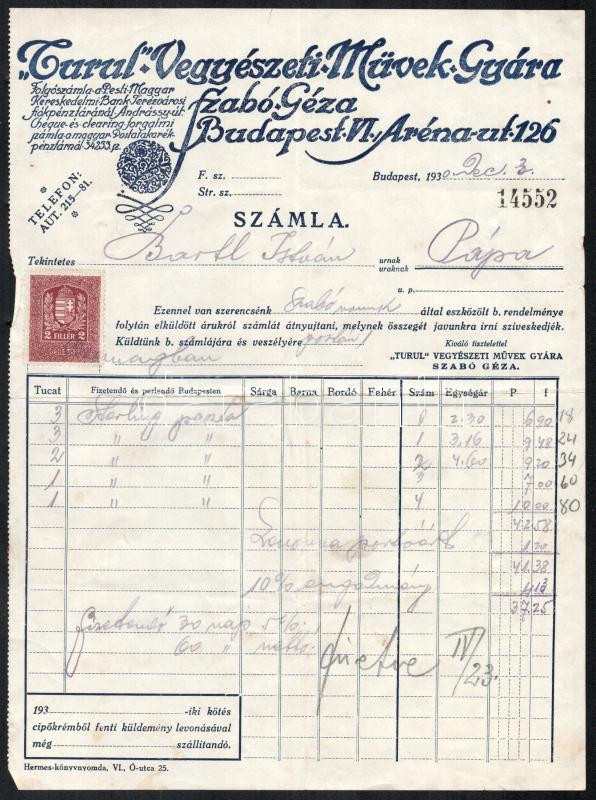 „Turul” Vegyészeti Művek Gyára
Folyószámla a Pesti Magyar
Kereskedelmi Bank Terézvárosi
fiókpénztáránál Andrássy-út.
Cheque és clearing forgalmi
számla a magy. Postatakarék-
pénztárnál 34233. sz.
Szabó Géza
Budapest VI., Aréna-ut 126
TELEFON:
AUT. 215—81.
F. sz.
Str. sz.
Budapest, 1930 Dec. 3.
14552
SZÁMLA.
Tekintetes Bartl István urnak uraknak Pápa
u. p.
2 FILLÉR 2
Ezennel van szerencsénk Szabó által eszközölt b. rendelménye
folytán elküldött árukról számlát átnyujtani, melynek összegét javunkra irni sziveskedjék.
Küldtünk b. számlájára és veszélyére postán
Kiváló tisztelettel
„TURUL” VEGYÉSZETI MŰVEK GYÁRA
SZABÓ GÉZA.
Tucat Fizetendő és perlendő Budapesten Sárga Barna Bordó Fehér Szám Egységár P f
3 Sterling paszta 0 2.30 6 90 18
3 " " 1 3.16 9 48 24
2 " " 2 4.60 9 20 34
1 " " 3 7 00 60
1 " " 4 10 00 80
42 58
1 20
41 38
10% engedmény 4 13
37 25
fizetendő 30 nap 5%
60 " netto
fizetve IV/23.
193 -iki kötés
cipőkrémből fenti küldemény levonásával
még szállítandó.
Hermes-könyvnyomda, VI., Ó-utca 25.